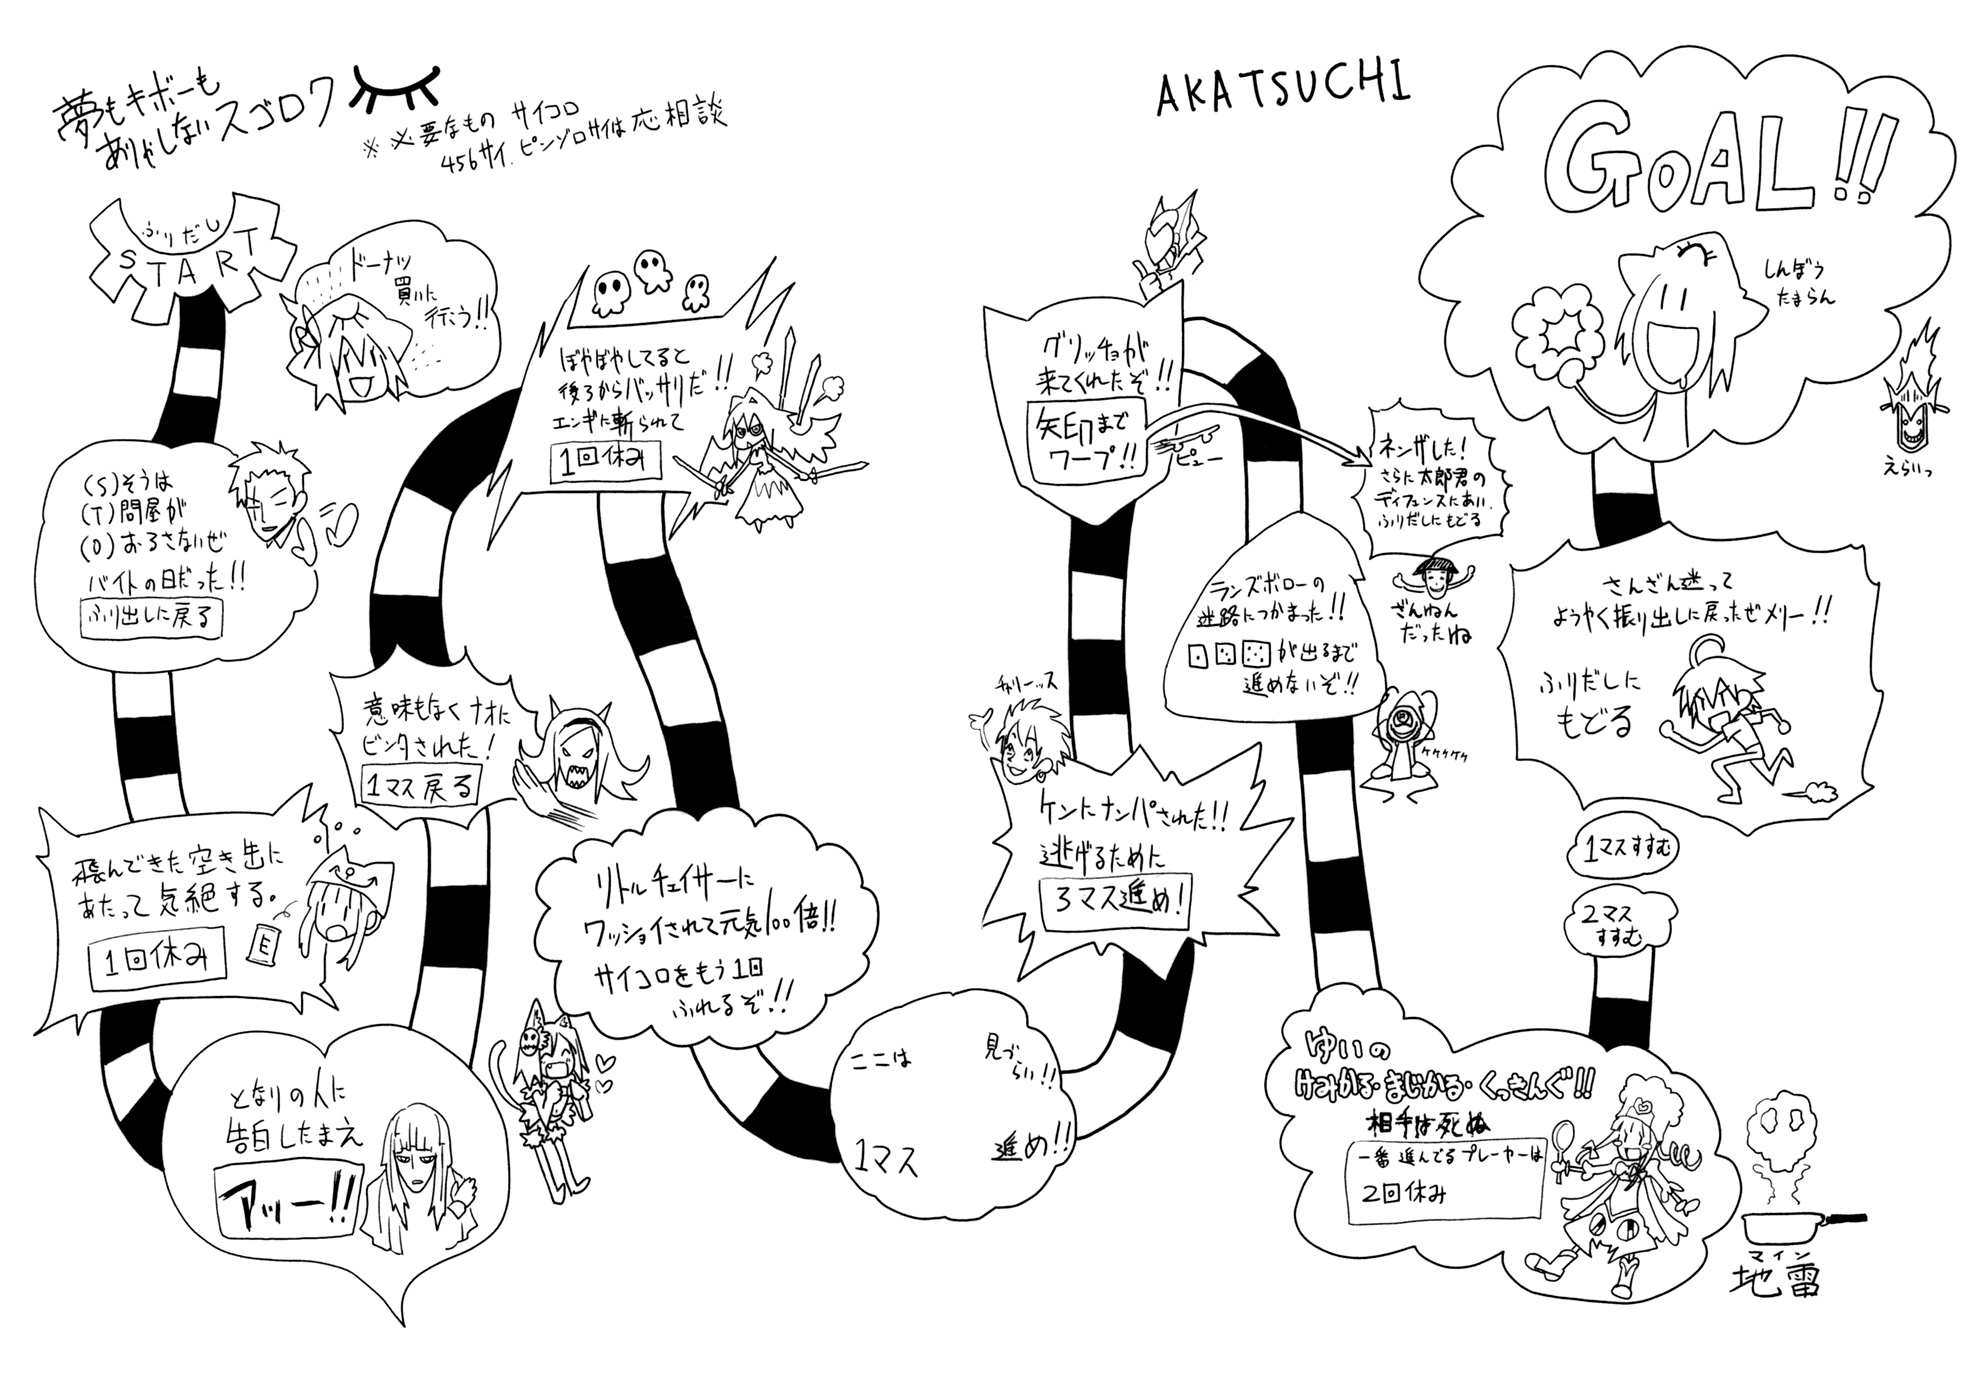 夢もキボーも
ありゃしないスゴロク
※必要なもの サイコロ
456サイ、ピンゾロサイは応相談
AKATSUCHI
ふりだし
START
ドーナツ
買いに
行こう!!
(S)そうは
(T)問屋が
(O)おろさないぜ
バイトの日だった!!
ふり出しに戻る
飛んできた空き缶に
あたって気絶する。
1回休み
E
となりの人に
告白したまえ
アッー!!
意味もなくナオに
ビンタされた!
1マス戻る
ぼやぼやしてると
後ろからバッサリだ!!
エンギに斬られて
1回休み
リトルチェイサーに
ワッショイされて元気100倍!!
サイコロをもう1回
ふれるぞ!!
ここは 見づらい!!
1マス 進め!!
チャリーッス
ケンにナンパされた!!
逃げるために
3マス進め!
グリッチョが
来てくれたぞ!!
矢印まで
ワープ!!
ピュー
ネンザした!
さらに太郎君の
ディフェンスにあい、
ふりだしにもどる
ざんねん
だったね
ランズボローの
迷路につかまった!!
が出るまで
進めないぞ!!
ケケケケケ
ゆいの
けみかる・まじかる・くっきんぐ!!
相手は死ぬ
一番進んでるプレーヤーは
2回休み
マイン
地雷
2マス
すすむ
1マスすすむ
さんざん迷って
ようやく振り出しに戻ったぜメリー!!
ふりだしに
もどる
GOAL!!
しんぼう
たまらん
えらいっ